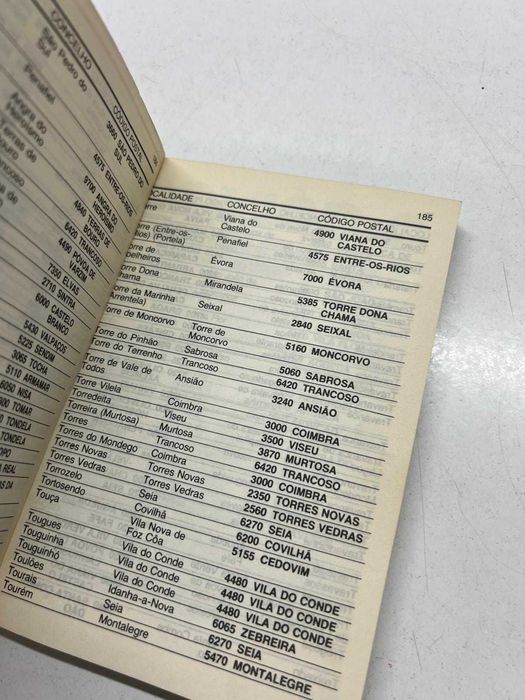 CONCELHO
CÓDIGO POSTAL
São Pedro do Sul
3660 SÃO PEDRO DO SUL
Penafiel
4575 ENTRE-OS-RIOS
Angra do Heroísmo
9700 ANGRA DO HEROÍSMO
4840 TERRAS DE BOURO
6420 TRANCOSO
4490 PÓVOA DE VARZIM
7350 ELVAS
2710 SINTRA
6000 CASTELO BRANCO
5430 VALPAÇOS
5225 SENDIM
3065 TOCHA
5110 ARMAMAR
6050 NISA
TOMAR
TONDELA
TONDELA
REAL
DA
CALIDADE CONCELHO CÓDIGO POSTAL 185
orre Viana do 4900 VIANA DO
Castelo CASTELO
orre (Entre-os- Penafiel 4575 ENTRE-OS-RIOS
Rios) (Portela)
orre de Évora 7000 ÉVORA
oelheiros
orre Dona Mirandela 5385 TORRE DONA
hama CHAMA
orre da Marinha Seixal 2840 SEIXAL
Arrentela)
orre de Moncorvo Torre de 5160 MONCORVO
Moncorvo
Torre do Pinhão Sabrosa 5060 SABROSA
Torre do Terrenho Trancoso 6420 TRANCOSO
Torre de Vale de Ansião 3240 ANSIÃO
Todos
Torre Vilela Coimbra 3000 COIMBRA
Torredeita Viseu 3500 VISEU
Torreira (Murtosa) Murtosa 3870 MURTOSA
Torres Trancoso 6420 TRANCOSO
Torres do Mondego Coimbra 3000 COIMBRA
Torres Novas Torres Novas 2350 TORRES NOVAS
Torres Vedras Torres Vedras 2560 TORRES VEDRAS
Torrozelo Seia 6270 SEIA
Tortosendo Covilhã 6200 COVILHÃ
Touça Vila Nova de 5155 CEDOVIM
Foz Côa
Tougues Vila do Conde 4480 VILA DO CONDE
Touguinha Vila do Conde 4480 VILA DO CONDE
Touguinhó Vila do Conde 4480 VILA DO CONDE
Toulões Idanha-a-Nova 6065 ZEBREIRA
Tourais Seia 6270 SEIA
Tourém Montalegre 5470 MONTALEGRE